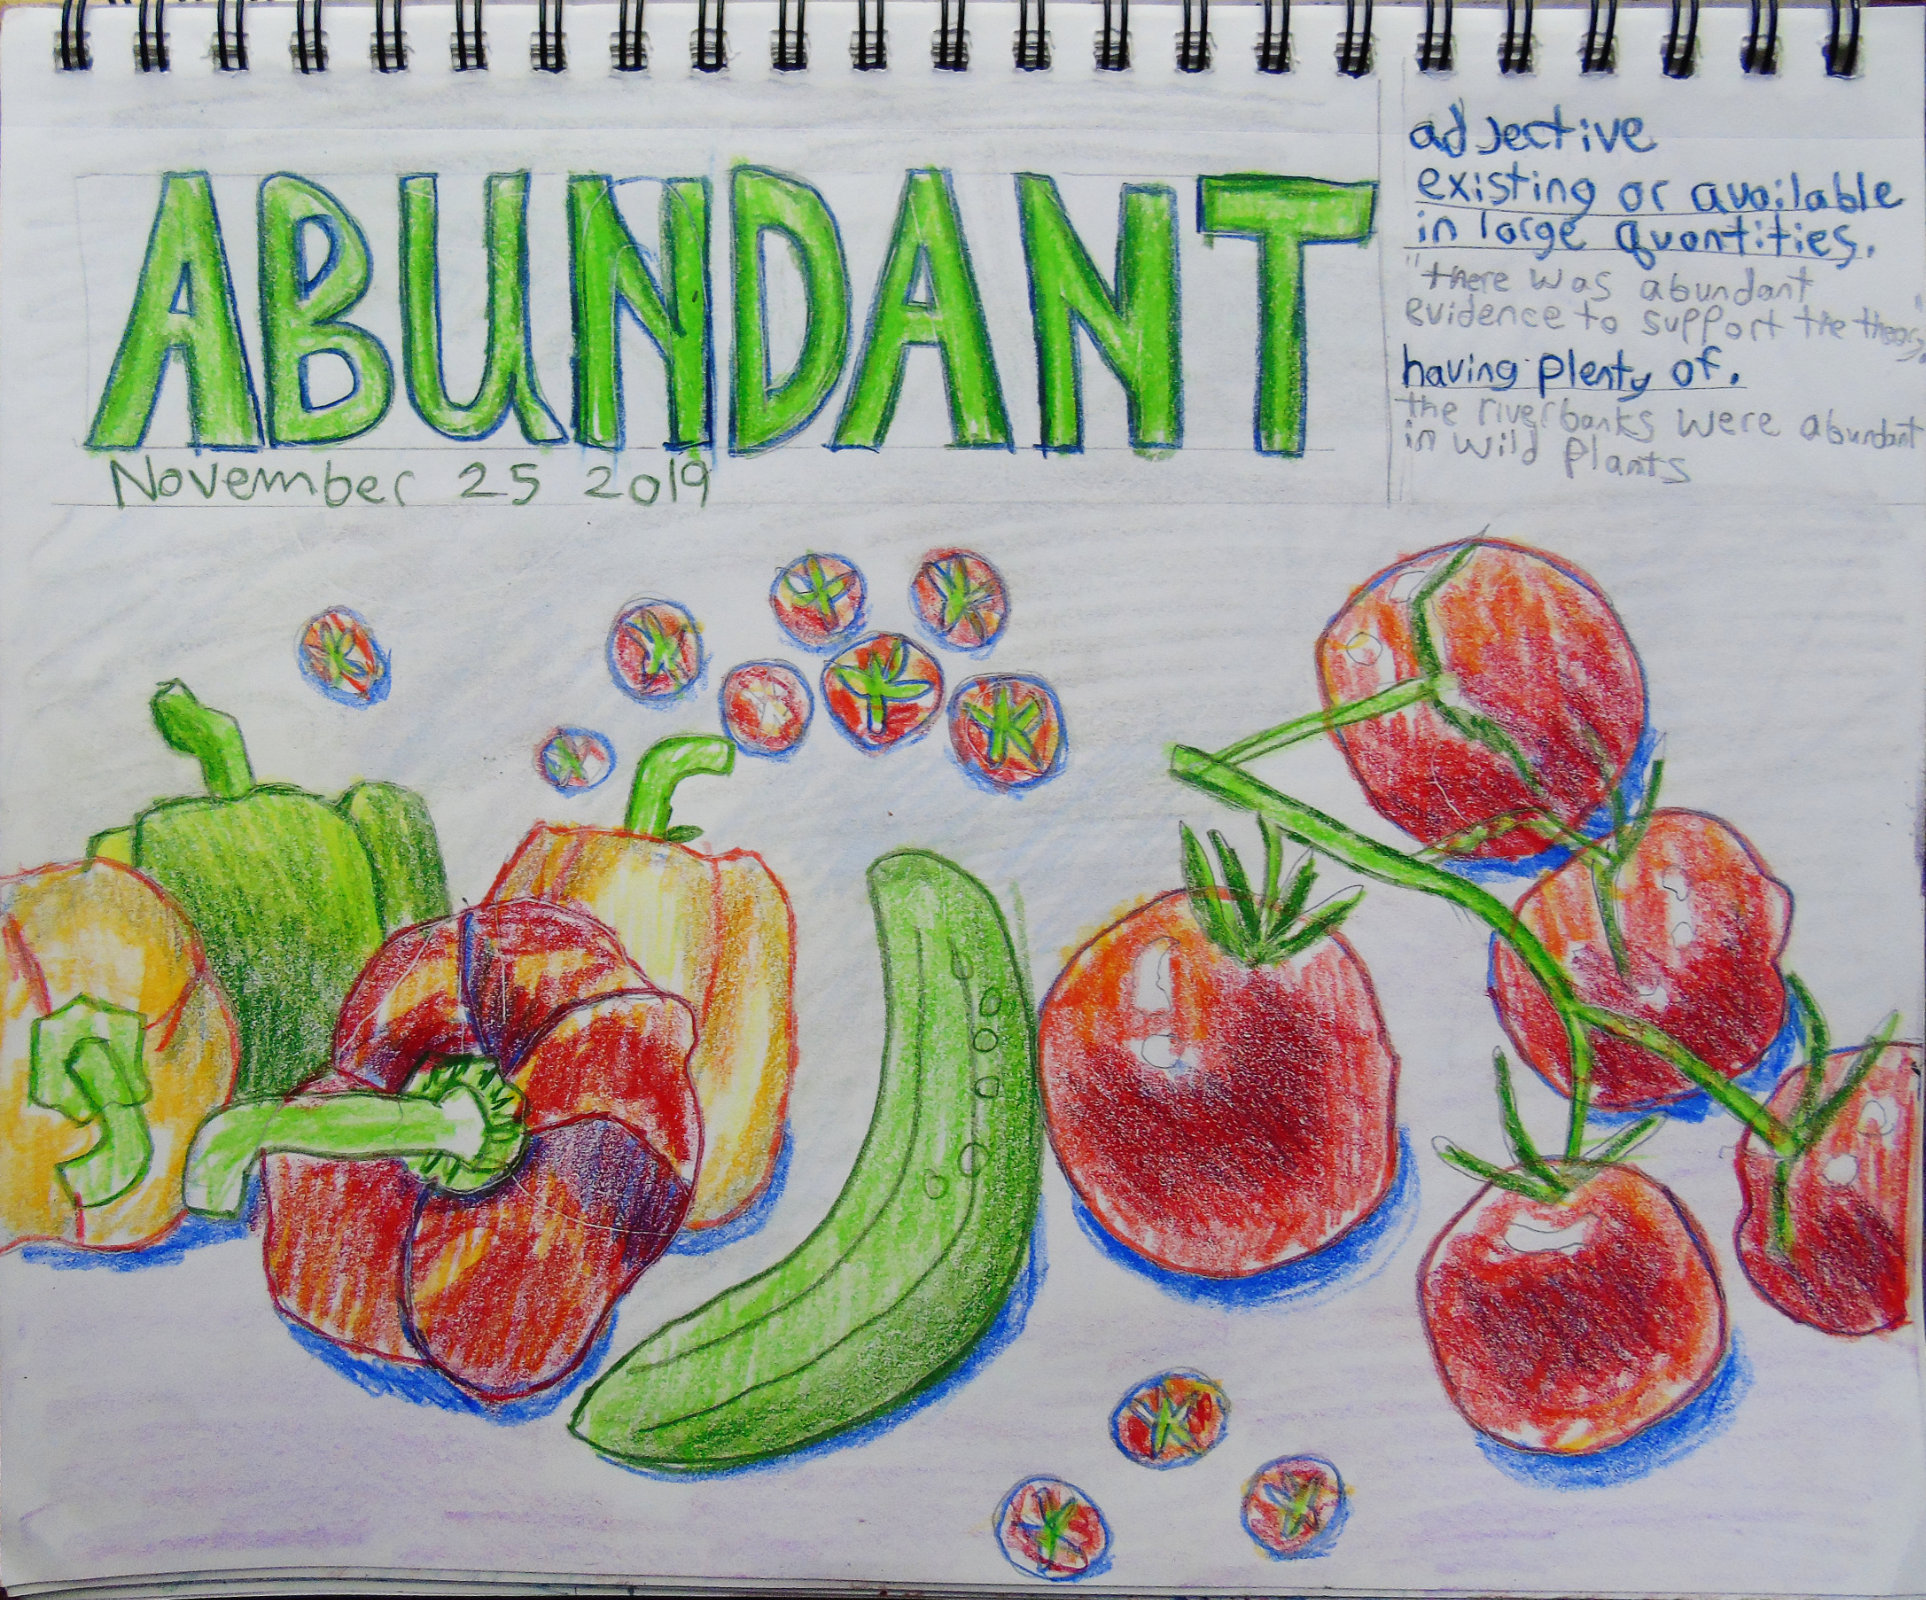 ABUNDANT
November 25 2019
adjective
existing or available
in large quantities.
"there was abundant
evidence to support the theory."
having plenty of.
the riverbanks were abundant
in wild plants